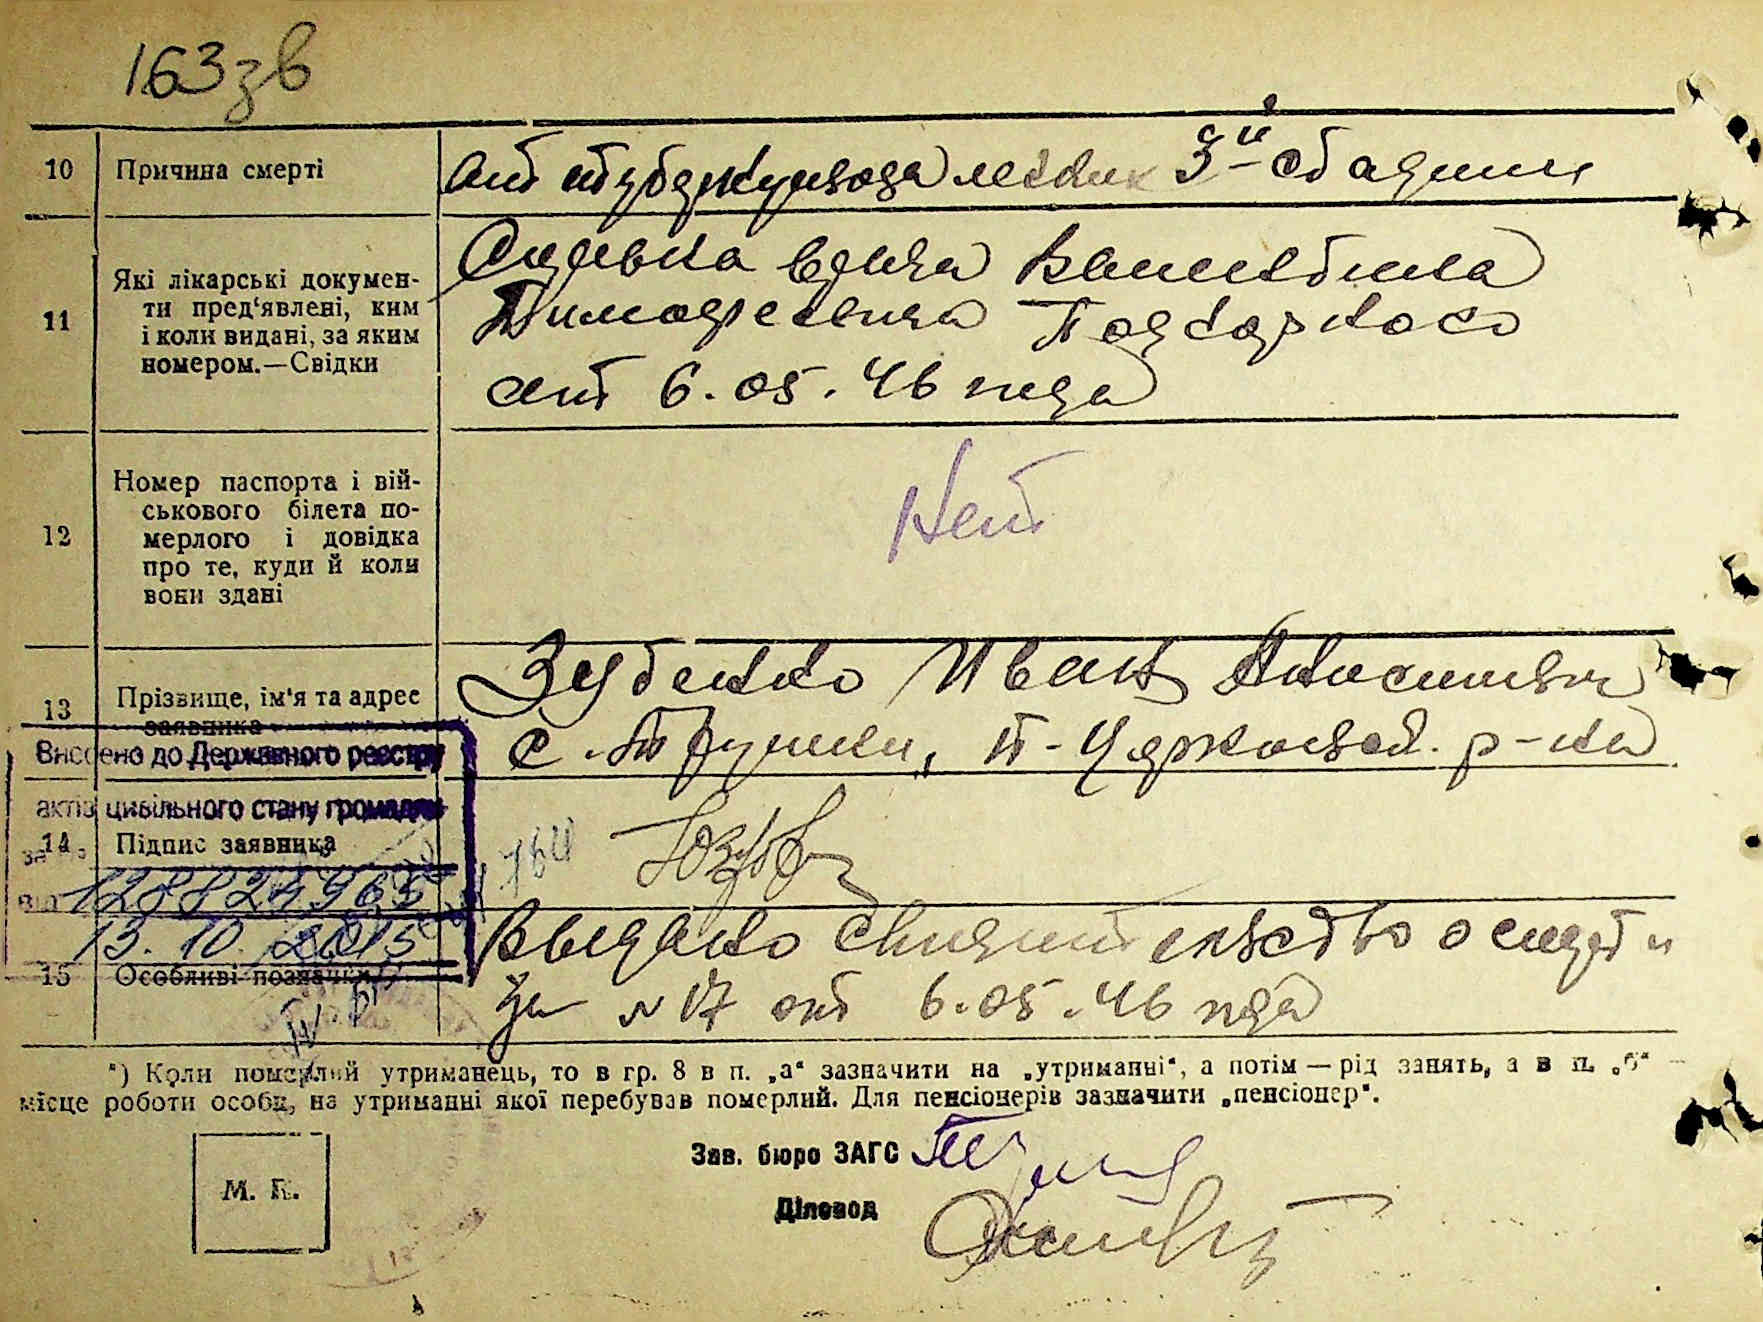 163зв
10 Причина смерти от туберкулеза легких 3й стадии
11 Які лікарські докумен-
ти пред'явлені, ким
і коли видані, за яким
номером.—Свідки
Справка врача
от 6.05.46 года
12 Номер паспорта і вій-
ськового білета по-
мерлого і довідка
про те, куди й коли
вони здані
Нет
13 Прізвище, ім'я та адрес
заявника
Зубенко Иван
с. Трушки, Б-Церковск. р-на
Внесено до Державного реєстру
актів цивільного стану громадян
14 Підпис заявника
за №
від 128824965
13.10.2015
15 Особливі позначки
Выдано свидетельство о смерти
за N 17 от 6.05.46 года
*) Коли померлий утриманець, то в гр. 8 в п. „а" зазначити на „утриманні", а потім — рід занять, а в п. „б" —
місце роботи особи, на утриманні якої перебував померлий. Для пенсіонерів зазначити „пенсіонер".
Зав. бюро ЗАГС
Діловод
М. П.